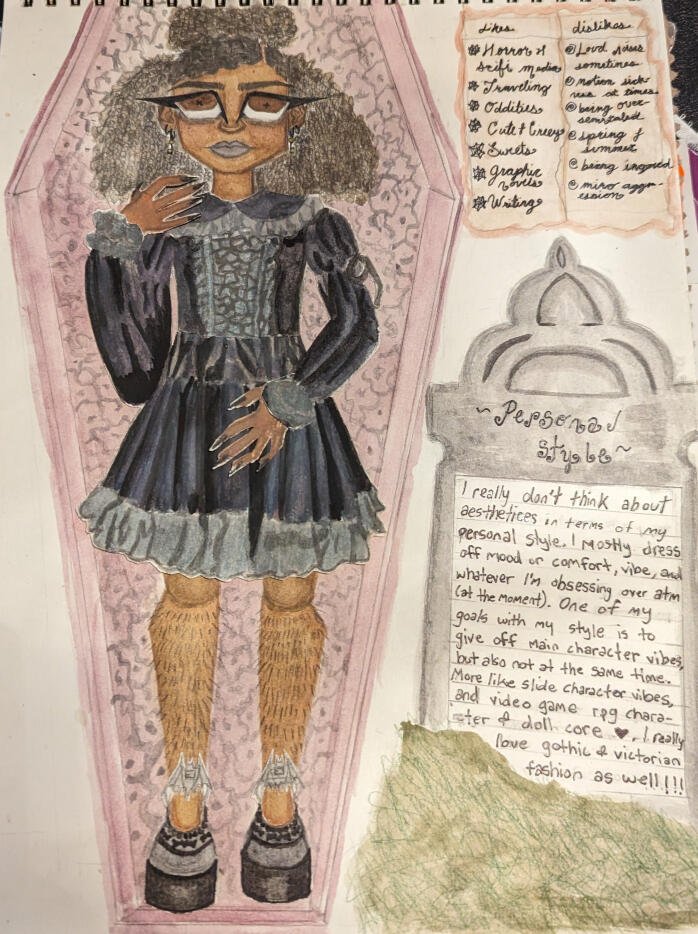 Likes
Horror &
scifi media
Traveling
Oddities
Cute & Creepy
Sweets
graphic
novels
Writing
dislikes
Loud noises
sometimes
motion sick-
ness at times
being over-
spring &
summer
being ignored
micro aggr-
ession
~Personal
Style~
I really don't think about
aesthetices in terms of my
personal style. I mostly dress
off mood or comfort, vibe, and
whatever I'm obsessing over atm
(at the moment). One of my
goals with my style is to
give off main character vibes,
but also not at the same time.
More like slide character vibes,
and video game rpg chara-
cter & doll core ♥. I really
love gothic & victorian
fashion as well!!!